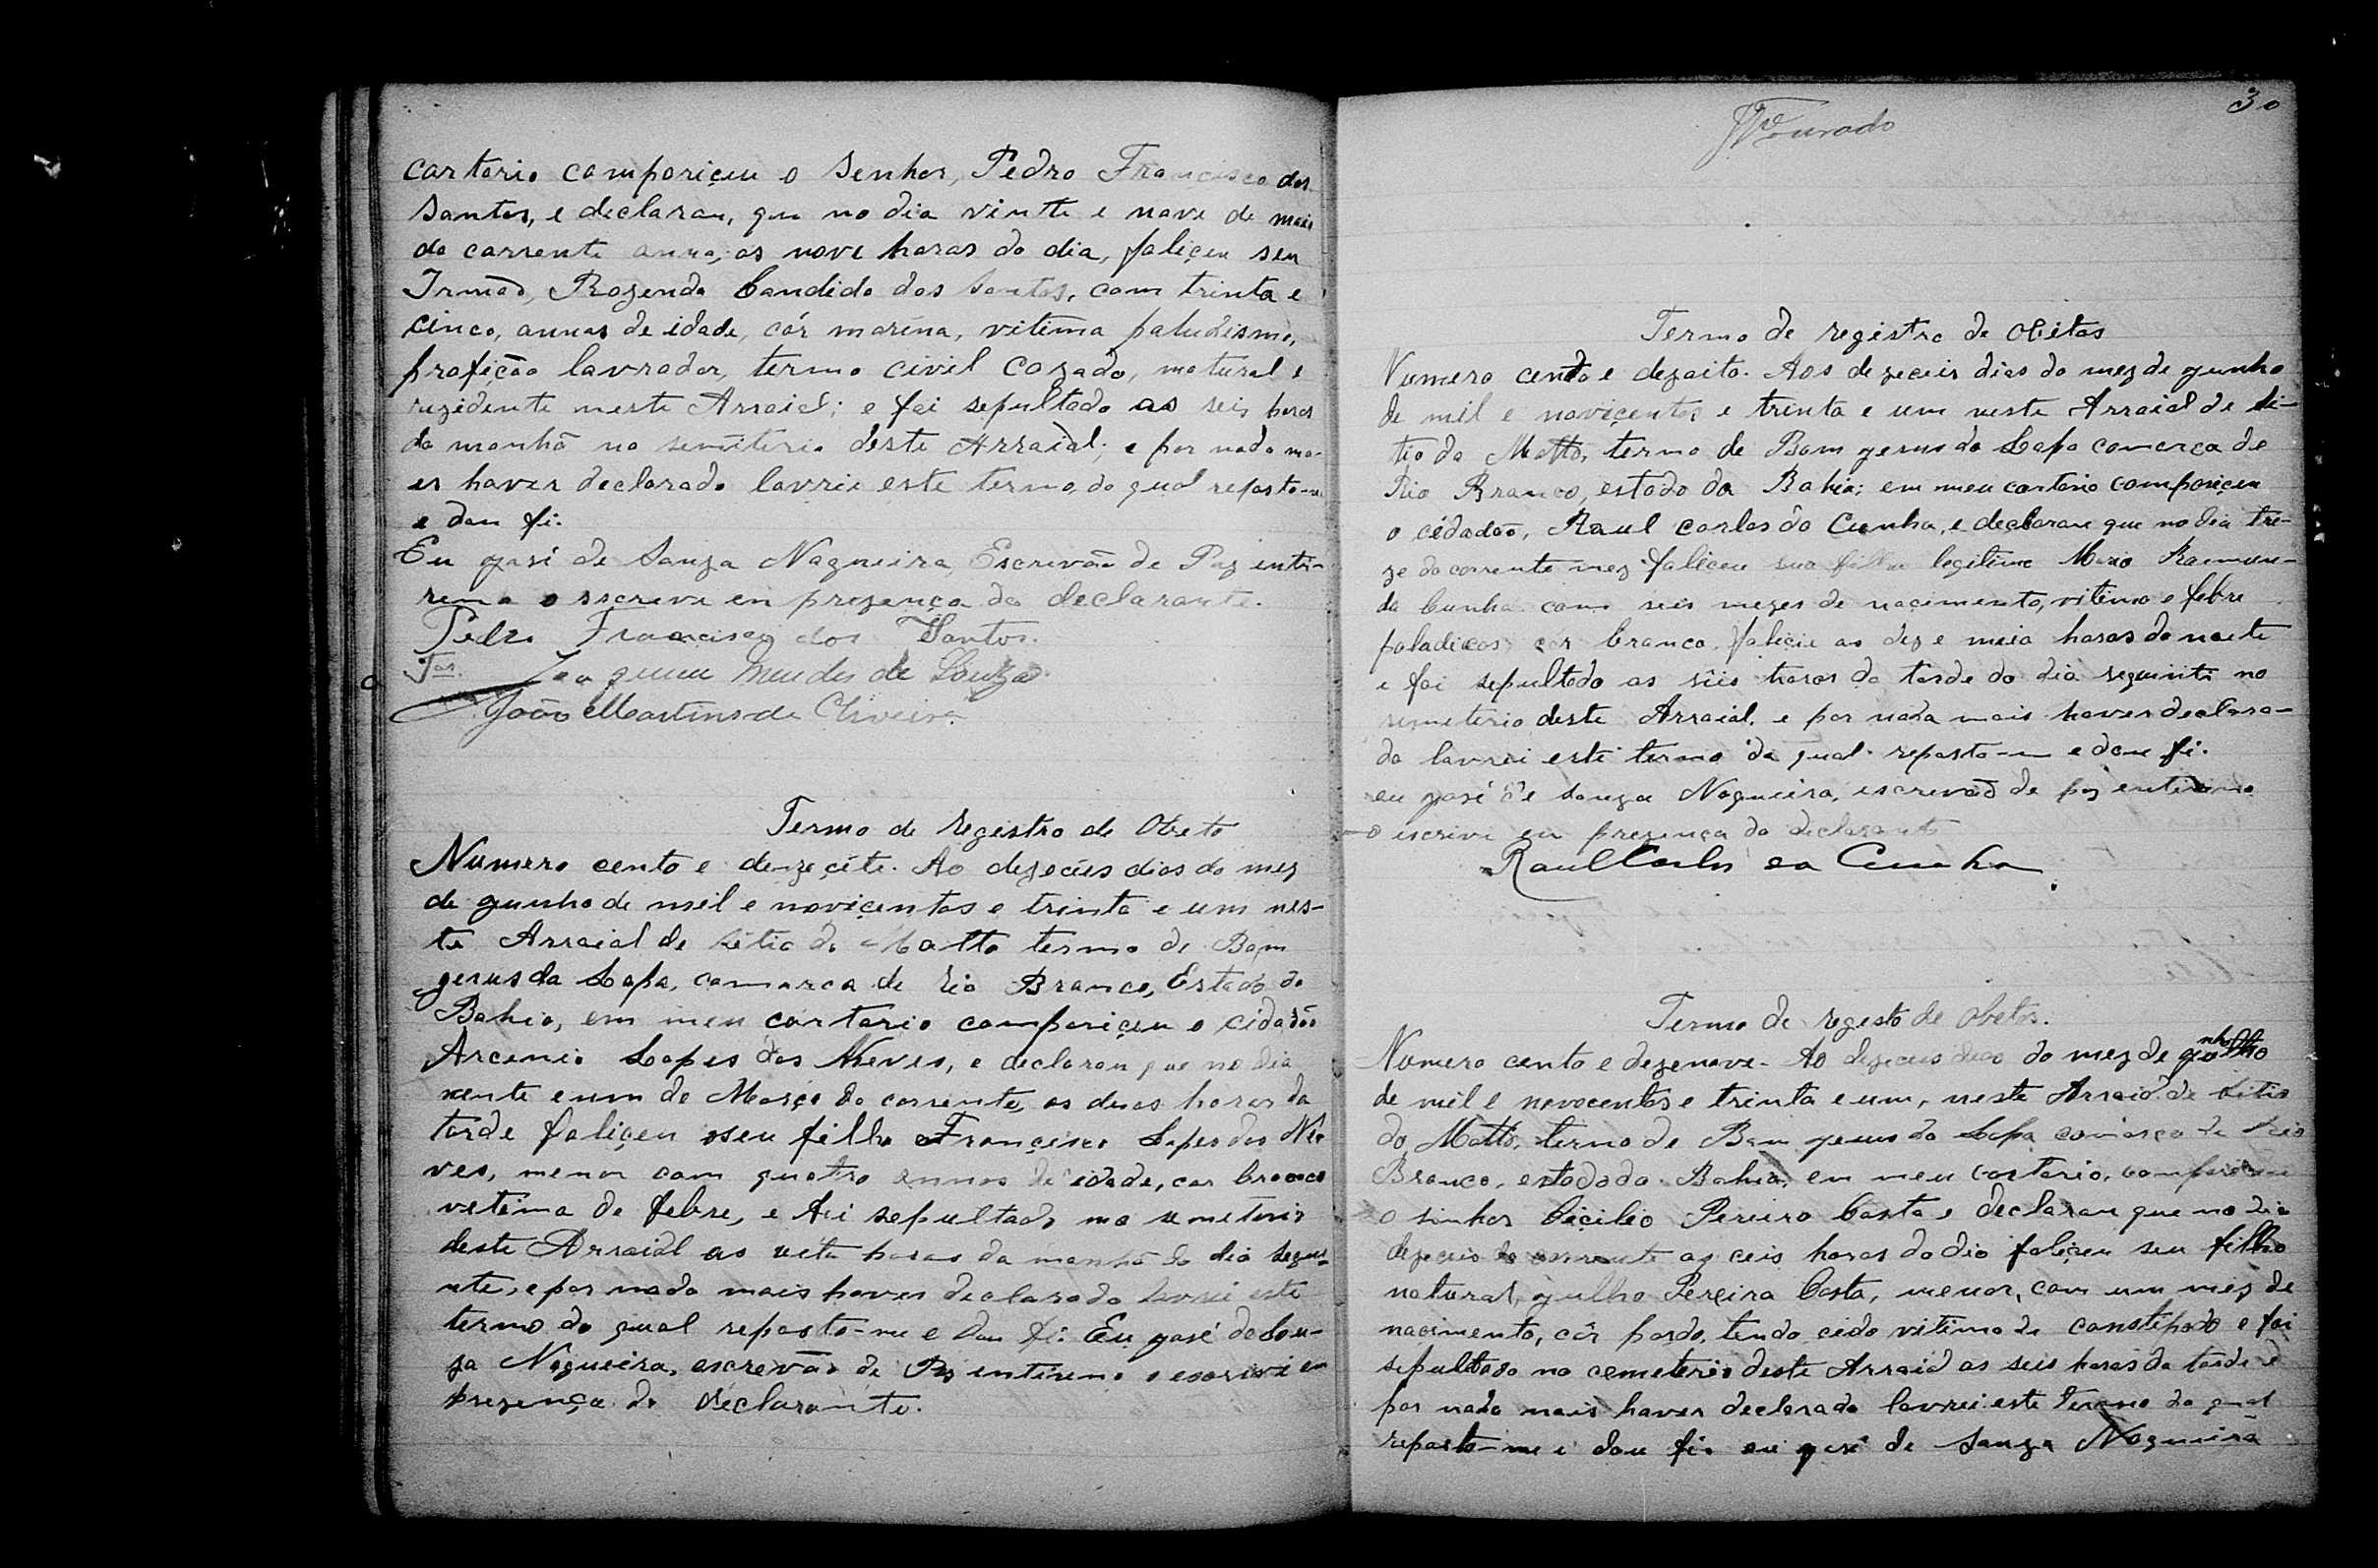 cartorio compariçeu o Senhor, Pedro Francisco dos
Santos, e declarou, que no dia vintte e nove de maio
do corrente anno, as nove horas do dia, faliçeu seu
Irmão, Rozendo Candido dos Santos, com trinta e
cinco, annos de idade, cór morína, vitima paludismo,
profição lavrador, termo civil cazado, natural e
rezidente neste Arraial; e foi sepultado as seis horas
da manhã no semiterio deste Arraial; e por nada ma-
es haver declarado lavrei este termo, do qual reporto-me
e dou fé.
Eu gosé de Souza Nogueira, Escrivão de Paz inte-
rino o sscreve en prezença do declarante.
Pedro Francisco dos Santos.
Joaquim Mendes de Souza
João Martins de Oliveira.
Termo de registro de Obeto
Numero cento e dezeçéte. Ao dezecéis dias do mez
de gunho de mil e noviçentos e trinta e um nes-
te Arraial de Sitio do Matto termo de Bom
gesus da Lapa, comarca de Rio Branco, Estado da
Bahia, em meu cartorio compariçeu o cidadão
Arcenio Lopes das Neves, e declarou que no dia
vente e um de Março do corrente, as duas horas da
tarde faliçeu o seu filho Françisco Lopes das Ne
ves, menor com quatro annos de idade, cor branca
vetima de febre, e foi sepultado no semeterio
deste Arraial as horas da manhã do dia segui-
nte, e por nada mais haver declarado lavrei este
termo do qual reporto-me e dou fé. Eu gosé de Sou-
za Nogueira, escrevão de Paz enterino o escrivi em
prezença do declarante.
30
Termo de registro de Obitos
Numero cento e dezoito. Aos dezeceis dias do mez de gunho
de mil e noviçentos e trinta e um neste Arraial de Si-
tio do Matto, termo de Bom gesus da Lapa comarca de
Rio Branco, estado da Bahia; em meu cartorio compariçeu
o cidadão, Raul Carlos da Cunha, e declarou que no dia tre-
ze do corrente mez faliceu legitimo Raimun-
da Cunha com seis mezes de naçimento, vitimo o febre
paladicas cor branca, as dez e meia horas da noite
e foi sepultado as séis horas da tarde do dia seguinte no
semeterio deste Arraial. e por nada mais haver declara-
do lavrei este termo do qual reporto-me e dou fé.
eu gosé de Souza Nogueira, escrevão de paz enterino
o escrivi en prezença do declarante
Raul Carlos da Cunha
Termo de registo de Obetos.
Numero cento e dezenove. Ao dezeceis dias do mez de gunho
de mil e novocentos e trinta e um, neste Arraial de Sitio
do Matto, termo de Bom gesus da Lapa comarca de Rio
Branco, estado da Bahia, em meu cartorio,
o sinhor Ciçilio Pereira Costa e declarou que no dia
dezeceis do corrente as ceis horas do dia faliçeu seu filho
natural, gulho Pereira Costa, menor, com um mez de
nacimento, côr pardo, tendo cido vitima de constipado e foi
sepultado no cemeterio deste Arraial as seis horas da tarde e
por nada mais haver declarado lavrei este termo do qual
reporto-me e dou fé. eu gosé de Souza Nogueira